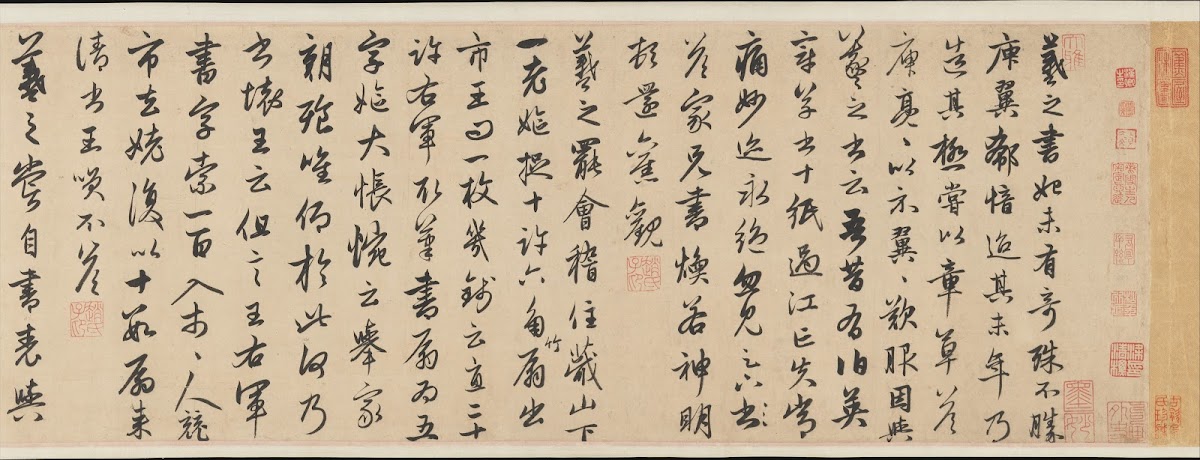 羲之書始未有奇殊不勝
庾翼郗愔迨其末年乃
造其極嘗以章草答
庾亮〻以示翼〻歎服因與
羲之書云吾昔有伯英
章草書十紙過江亡失常
痛妙迹永絶忽見足下書
答家兄書煥若神明
頓還舊觀
趙氏子昂
羲之罷會稽住蕺山下
一老嫗捉十許六角竹扇出
市王問一枚幾錢云直二十
許右軍取筆書扇為五
字嫗大悵惋云舉家
朝飱唯仰於此何乃
書壞王云但言王右軍
書字索一百入市〻人競
市去嫗復以十數扇來
請書王笑不答
趙氏子昂
羲之嘗自書表與